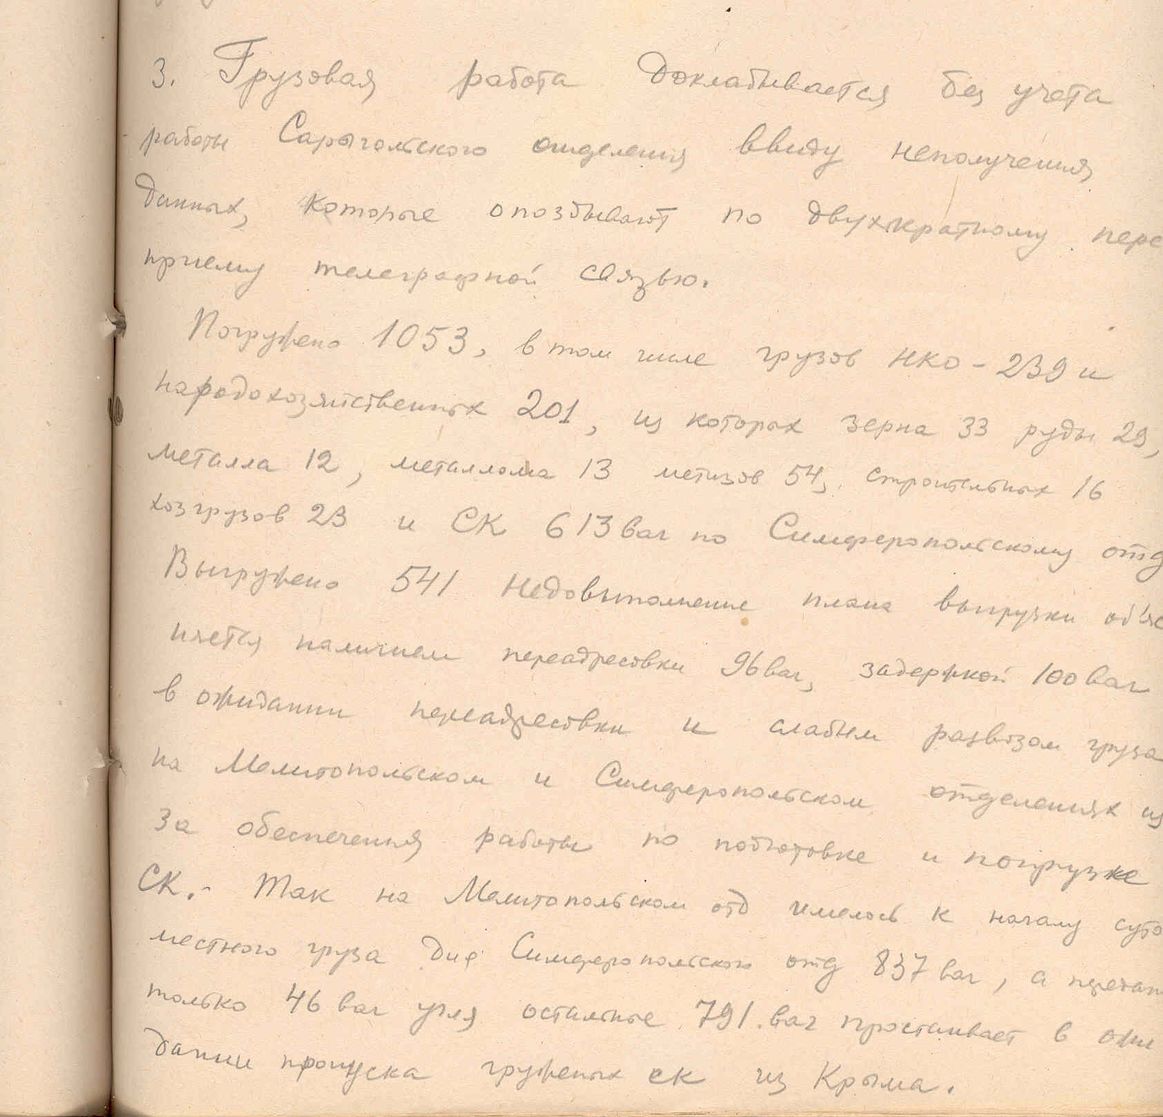 3. Грузовая работа докладывается без учета
работы Сарыгольского отделения ввиду неполучения
данных, которые опоздывают по двухкратному пере
приему телеграфной связью.
Погружено 1053, в том числе грузов НКО - 239 и
народохозяйственных 201, из которых зерна 33 руды 29,
металла 12, металлома 13 метизов 54, строительных 16
хозгрузов 23 и СК 613 ваг по Симферопольскому отд
Выгружено 541 Недовыполнение плана выгрузки об'яс
няется наличием переадресовки 96 ваг, задержкой 100 ваг
в ожидании переадресовки и слабым развозом груза
на Мелитопольском и Симферопольском отделениях из
за обеспечения работы по подготовке и погрузке
СК. - Так на Мелитопольском отд имелось к началу суто
местного груза для Симферопольского отд 837 ваг, а
только 46 ваг угля остальные 791 ваг простаивает в ожи
дании пропуска груженых ск из Крыма.